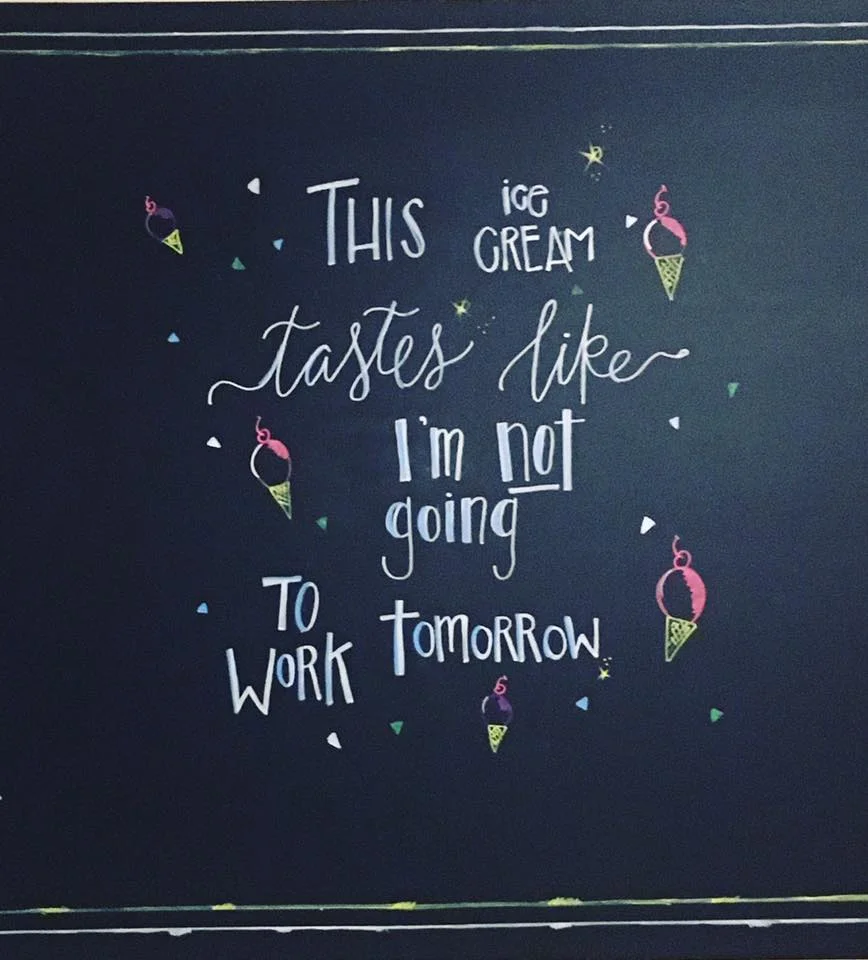 THIS ice CREAM
tastes like
I'm not
going
TO WORK tomorrow